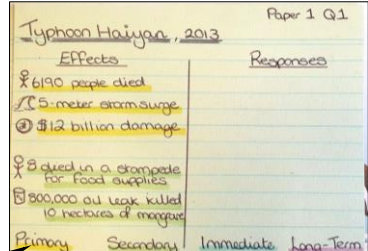 Paper 1 Q1
Typhoon Haiyan, 2013
Effects
Responses
6190 people died
5-meter storm surge
$12 billion damage
8 died in a stampede
for food supplies
800,000 oil leak killed
10 hectares of mangrove
Primary Secondary Immediate Long-Term